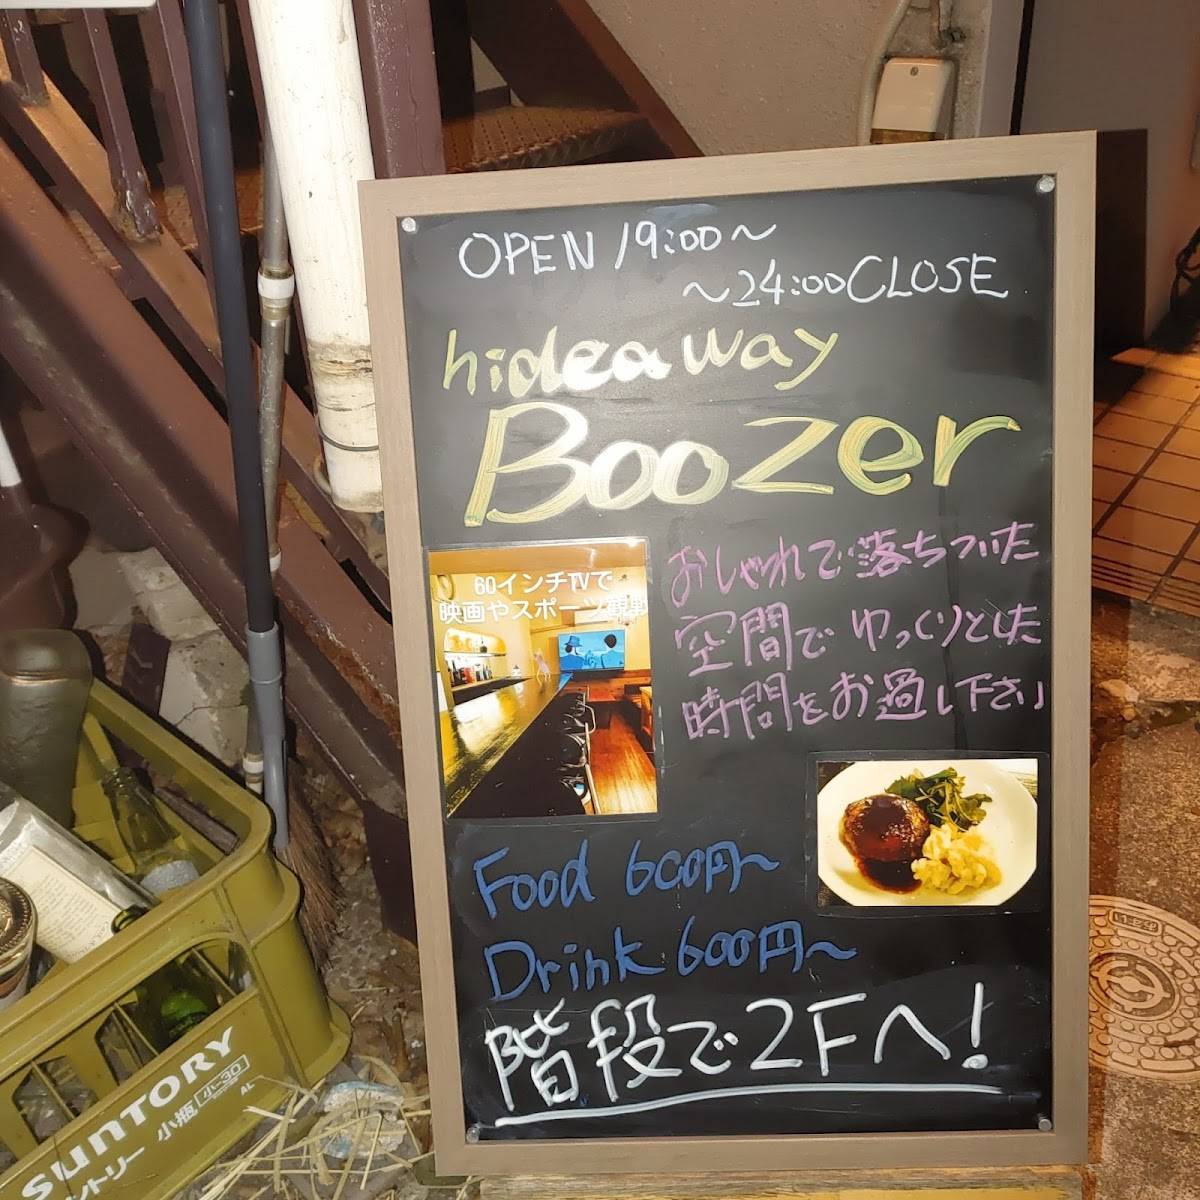 OPEN 19:00～
～24:00 CLOSE
hideaway
Boozer
60インチTVで
映画やスポーツ観戦
おしゃれで落ちついた
空間でゆっくりとした
時間をお過し下さい
Food 600円～
Drink 600円～
階段で2Fへ!
SUNTORY
小瓶 小-30
AL
ントリー